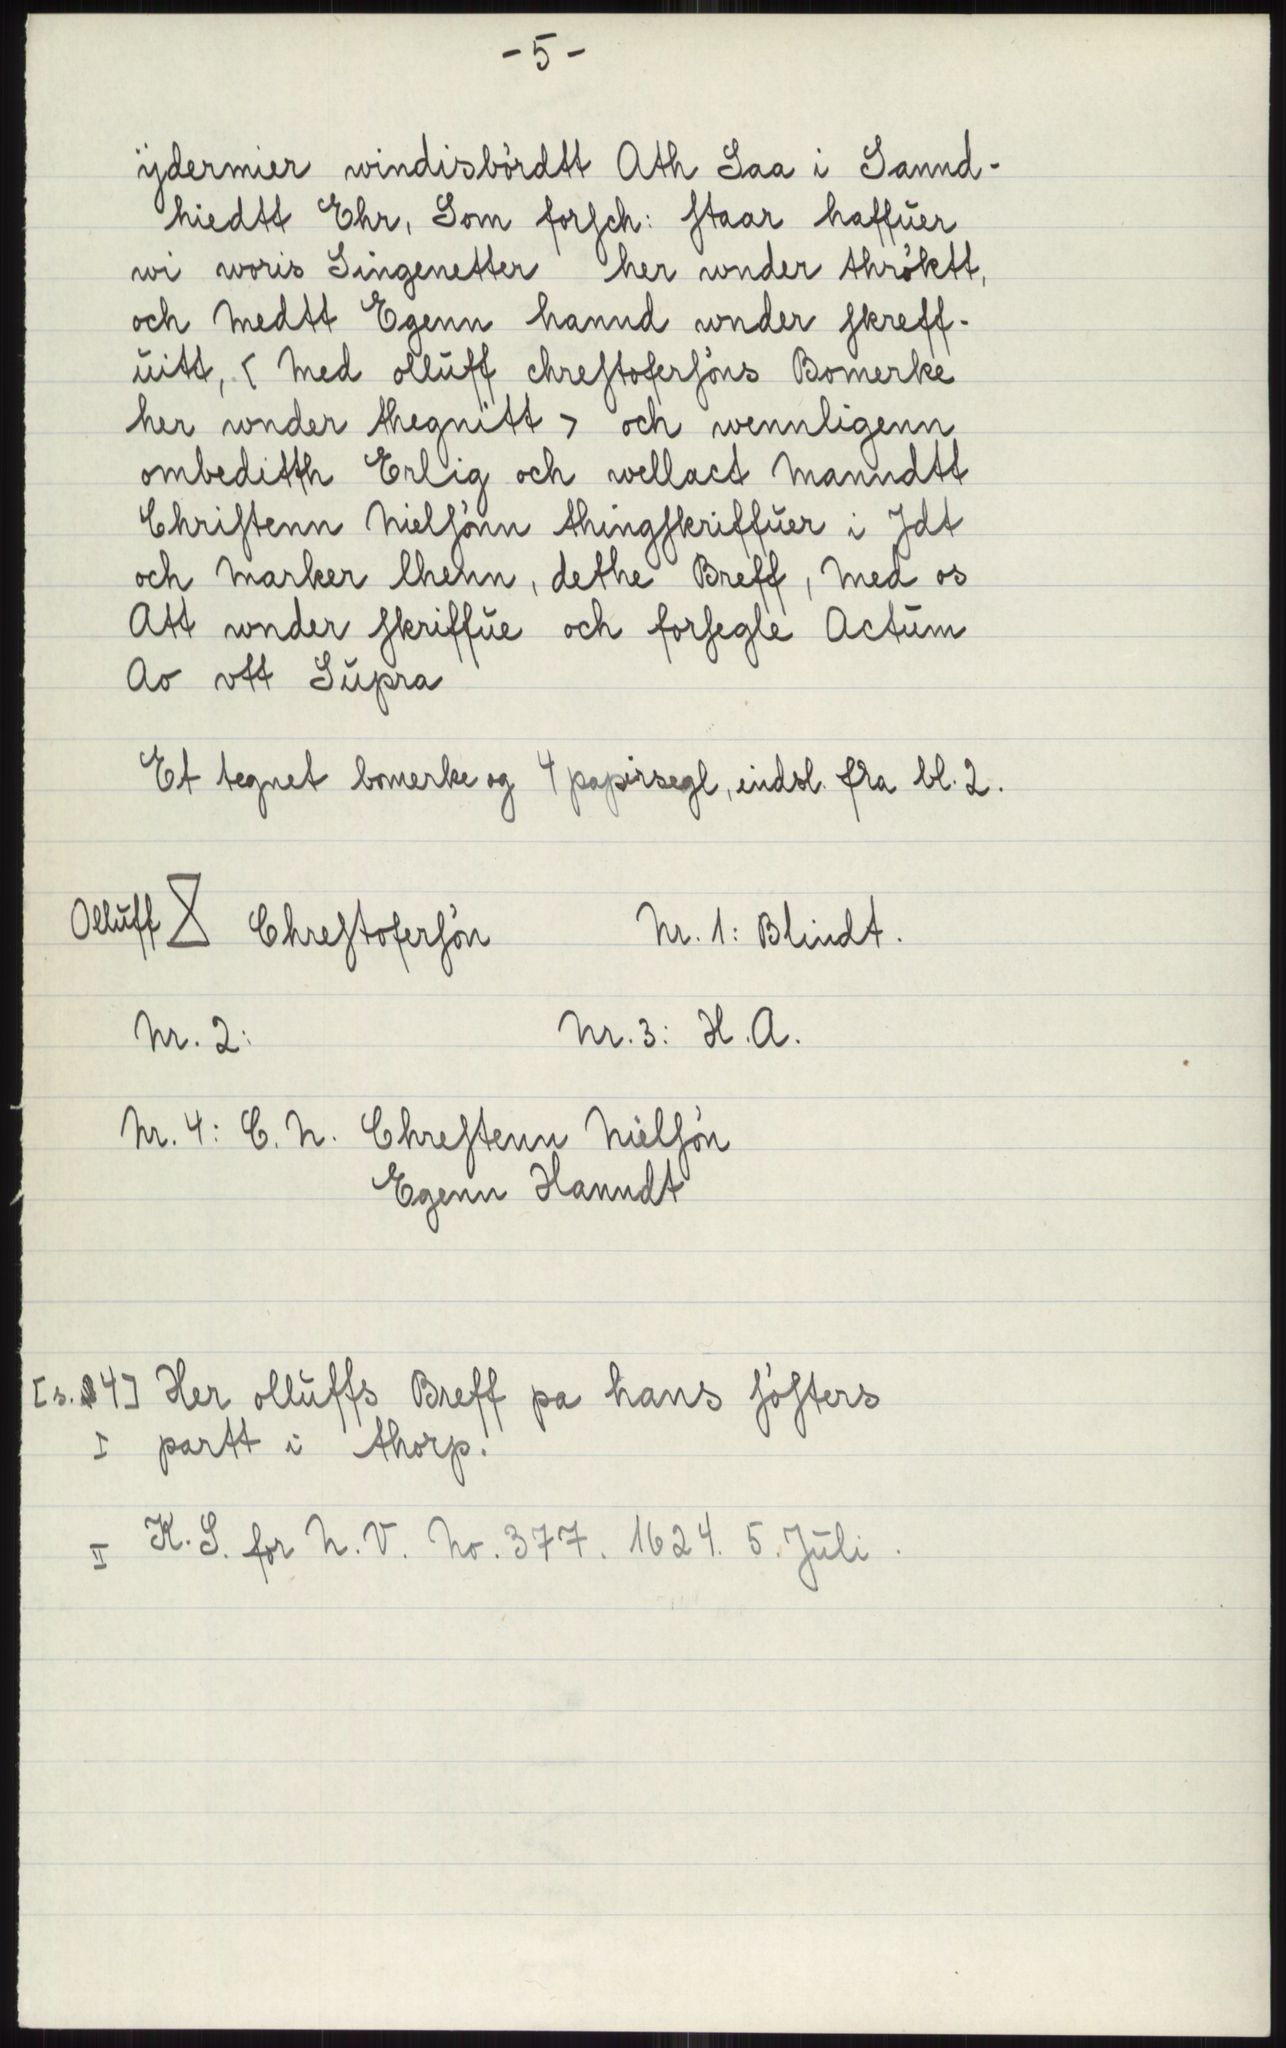 - 5 -
ÿdermier windisbördtt Ath Saa i Sannd-
hiedtt Ehr, Som forsch: staar haffuer
wi woris Singenetter her wnder thröktt,
och Medtt Egenn hannd wnder skreff-
uitt, < Med olluff chrestofersöns Bomerke
her wnder thegnitt > och wennligenn
ombeditth Erlig och wellact Manndtt
Christenn Nielsönn thingskriffuer i Jdt
och Marker lhenn, dethe Breff, Med os
Att wnder skriffue och forsegle Actum
Ao vtt Supra
Et tegnet bomerke og 4 papirsegl, eindsl. fra bl. 2.
Olluff Chrestofersön Nr. 1: Blindt.
Nr. 2: Nr. 3: H. A.
Nr. 4: C. N. Chrestenn Nielsön
Egenn Hanndt
[s. 4] Her olluffs Breff pa hans sösters
I partt i thorp.
II K. S. for N. V. No. 377. 1624. 5. Juli.